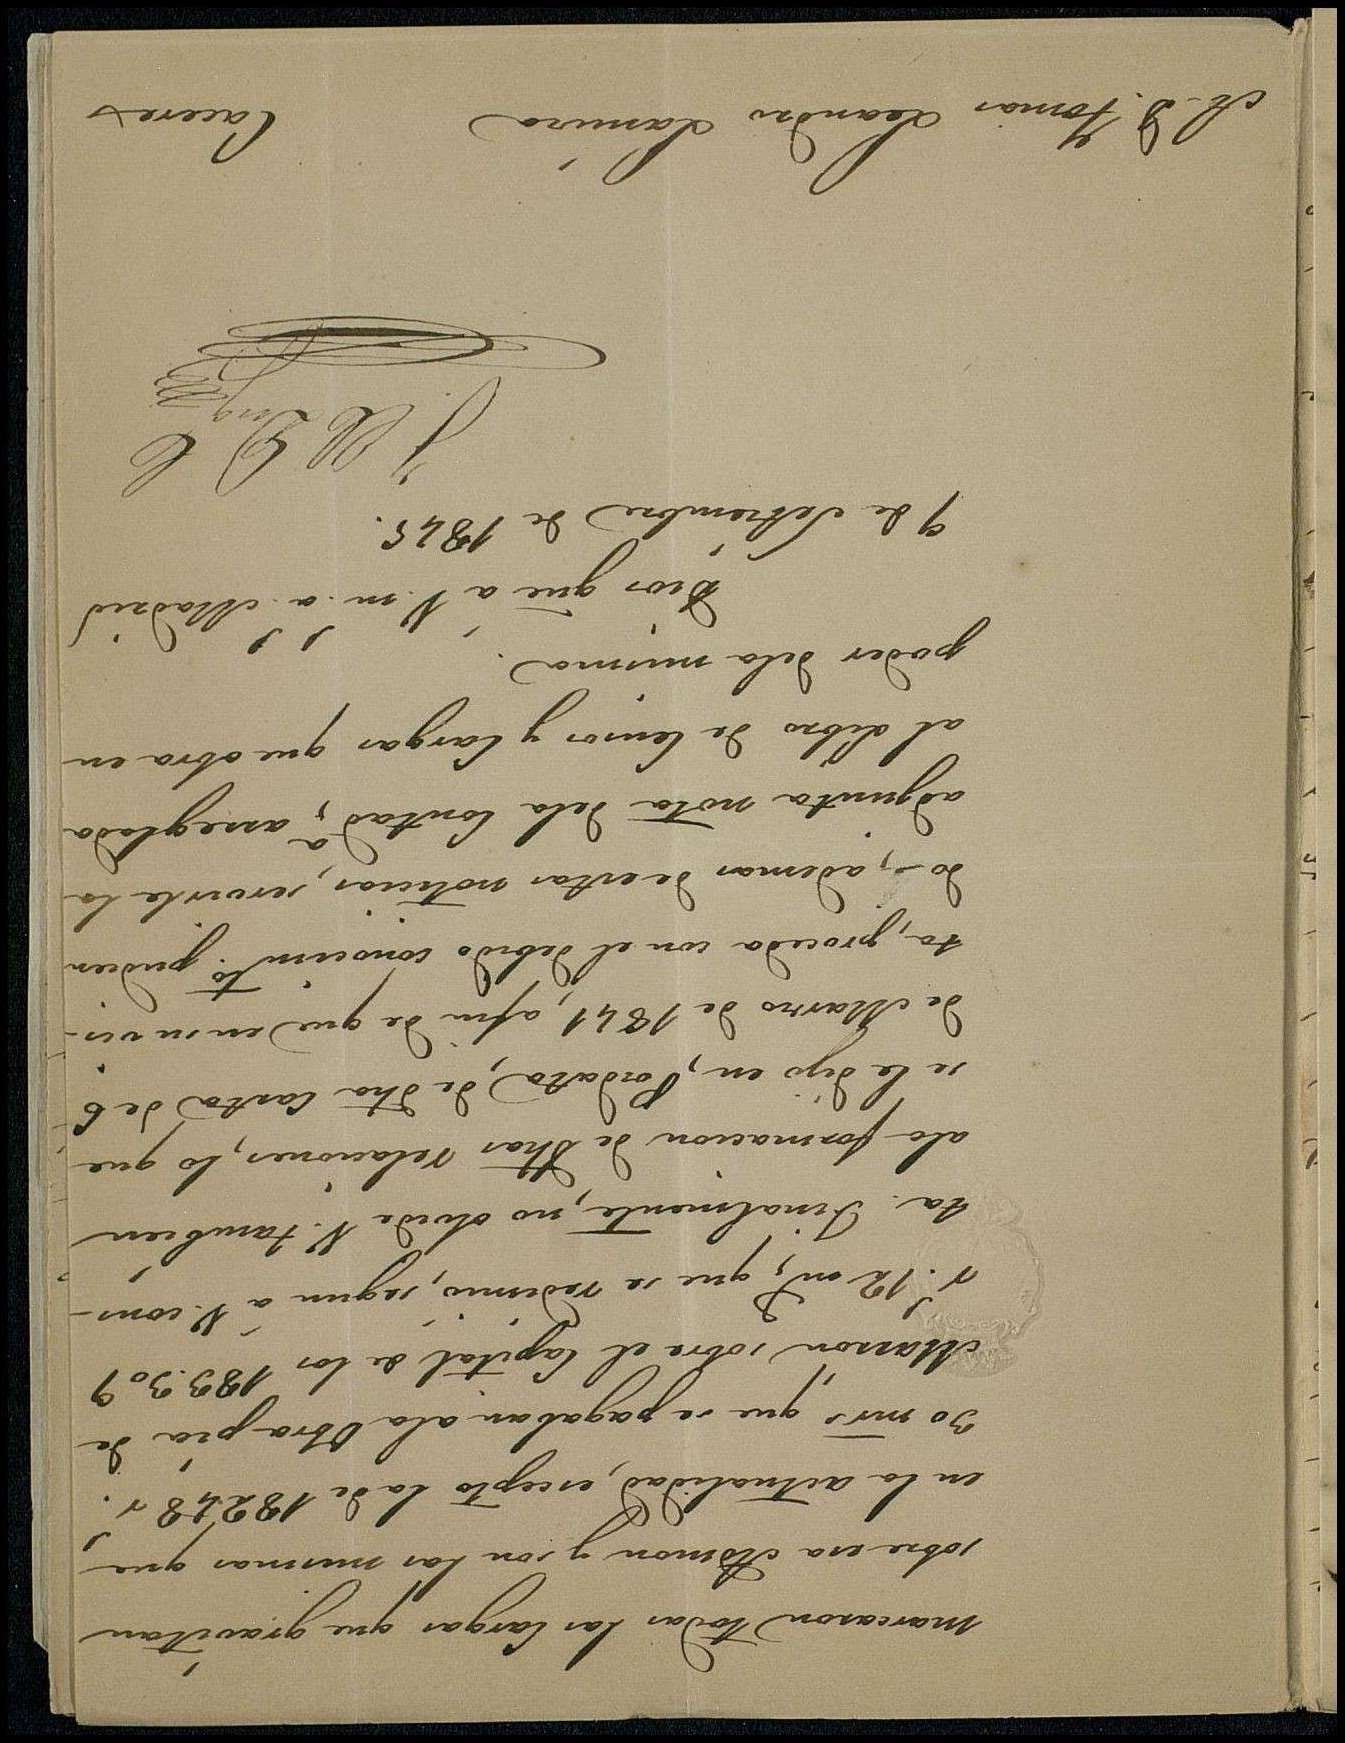 marcaron todas las Cargas que gravitan
sobre esa Admon y son las mismas que
en la actualidad, escepto la de 18248 r.
30 mrs que se pagaban ala Obra pia de
Marron sobre el Capital de los 183.309
r. 12 mrs que se redimio, segun á V. cons-
ta. Finalmente, no olvide V. tambien
ala formacion de dhas relaciones, lo que
se le dijo en Posdata, de dha Carta de 6
de Marzo de 1841, afin de que en su vis-
ta, proceda con el debido conocimto pudien
do-, ademas de estas noticias, servirle la
adjunta nota dela Contada, arreglada
al Libro de Censos y Cargas que obra en
poder dela misma.
Dios gue á V. m. a. Madrid
9 de Setiembre de 1845.
J A D C
S. D. Tomas Leandro Lamira Caceres